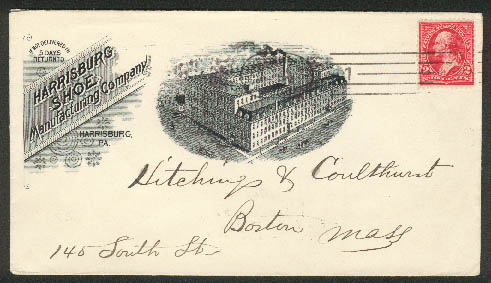 IF NOT DELIVERED IN
5 DAYS
RETURN TO
HARRISBURG
SHOE
Manufacturing Company
HARRISBURG,
PA.
Hitchings & Coulthurst
Boston Mass
145 South St